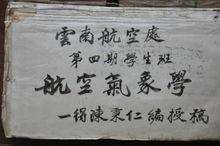 雲南航空處
第四期學生班
航空氣象學
一得陳秉仁編授稿